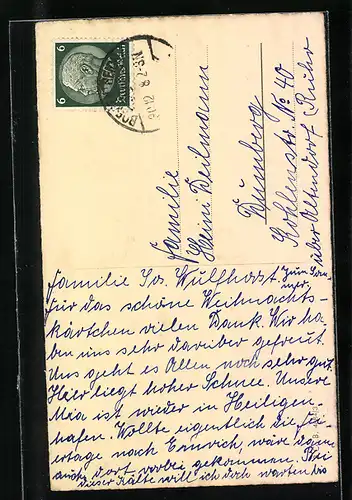 6
6
Deutsches Reich
30.12
8-9N
Familie
Heini Deilmann
Dumberg
Kohlenstr. No 40
über Altendorf Ruhr
Familie Sv. Wulfhorst.
Für das schöne Weihnachts-
kärtchen vielen Dank. Wir ha-
ben uns sehr darüber gefreut.
Uns geht es Allen noch sehr gut.
Hier liegt hoher Schnee. Unsere
Mia ist wieder in Heiligen-
hafen. Wollte eigentlich die Fei-
ertage nach Emrich, wäre dann
auch dort vorbei gekommen. Bei
dieser Kälte will ich doch warten bis
zum Som-
mer.